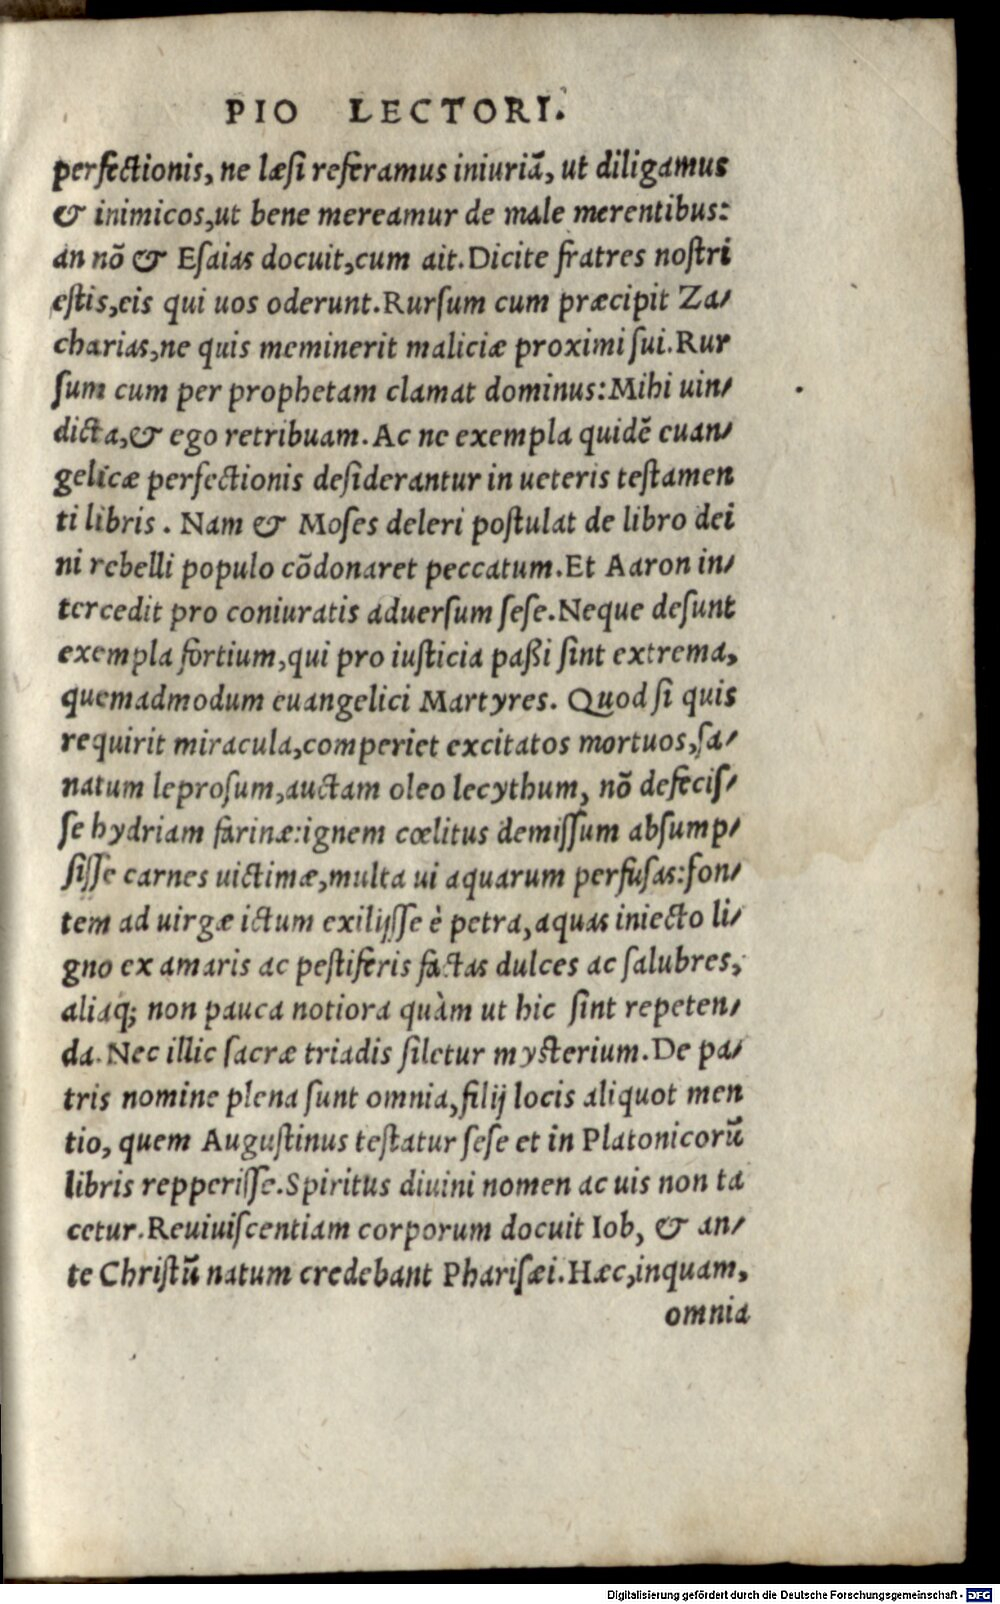 PIO LECTORI.
perfectionis, ne læſi referamus iniuriã, ut diligamus
& inimicos,ut bene mereamur de male merentibus:
an nõ & Eſaias docuit,cum ait.Dicite fratres noſtri
eſtis,eis qui uos oderunt.Rurſum cum præcipit Za/
charias,ne quis meminerit maliciæ proximi ſui.Rur
ſum cum per prophetam clamat dominus:Mihi uin/
dicta,& ego retribuam.Ac ne exempla quidẽ euan/
gelicæ perfectionis deſiderantur in ueteris teſtamen
ti libris. Nam & Moſes deleri poſtulat de libro dei
ni rebelli populo cõdonaret peccatum.Et Aaron in/
tercedit pro coniuratis aduerſum ſeſe.Neque deſunt
exempla fortium,qui pro iuſticia paßi ſint extrema,
quemadmodum euangelici Martyres. Quod ſi quis
requirit miracula,comperiet excitatos mortuos,ſa/
natum leproſum,auctam oleo lecythum, nõ defeciſ/
ſe hydriam farinæ:ignem cœlitus demiſſum abſump/
ſiſſe carnes uictimæ,multa ui aquarum perfuſas:fon/
tem ad uirgæ ictum exilijſſe è petra,aquas iniecto li/
gno ex amaris ac peſtiferis factas dulces ac ſalubres,
aliaq; non pauca notiora quàm ut hic ſint repeten/
da.Nec illic ſacræ triadis ſiletur myſterium.De pa/
tris nomine plena ſunt omnia,filij locis aliquot men
tio, quem Auguſtinus teſtatur ſeſe et in Platonicorũ
libris repperiſſe.Spiritus diuini nomen ac uis non ta
cetur.Reuiuiſcentiam corporum docuit Iob, & an/
te Chriſtũ natum credebant Phariſæi.Hæc,inquam,
omnia
Digitalisierung gefördert durch die Deutsche Forschungsgemeinschaft - DFG